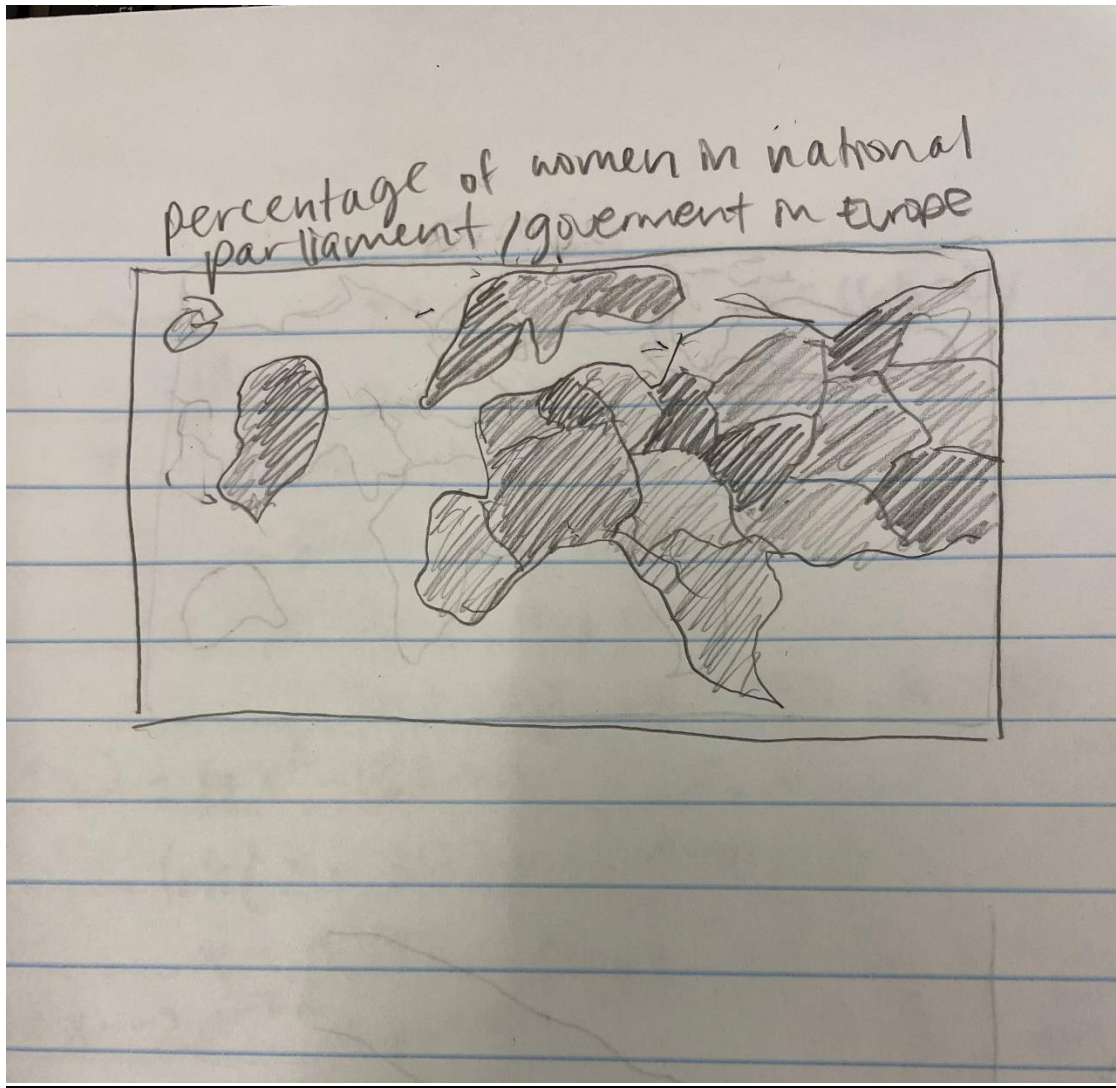 percentage of women in national
parliament / goverment in Europe